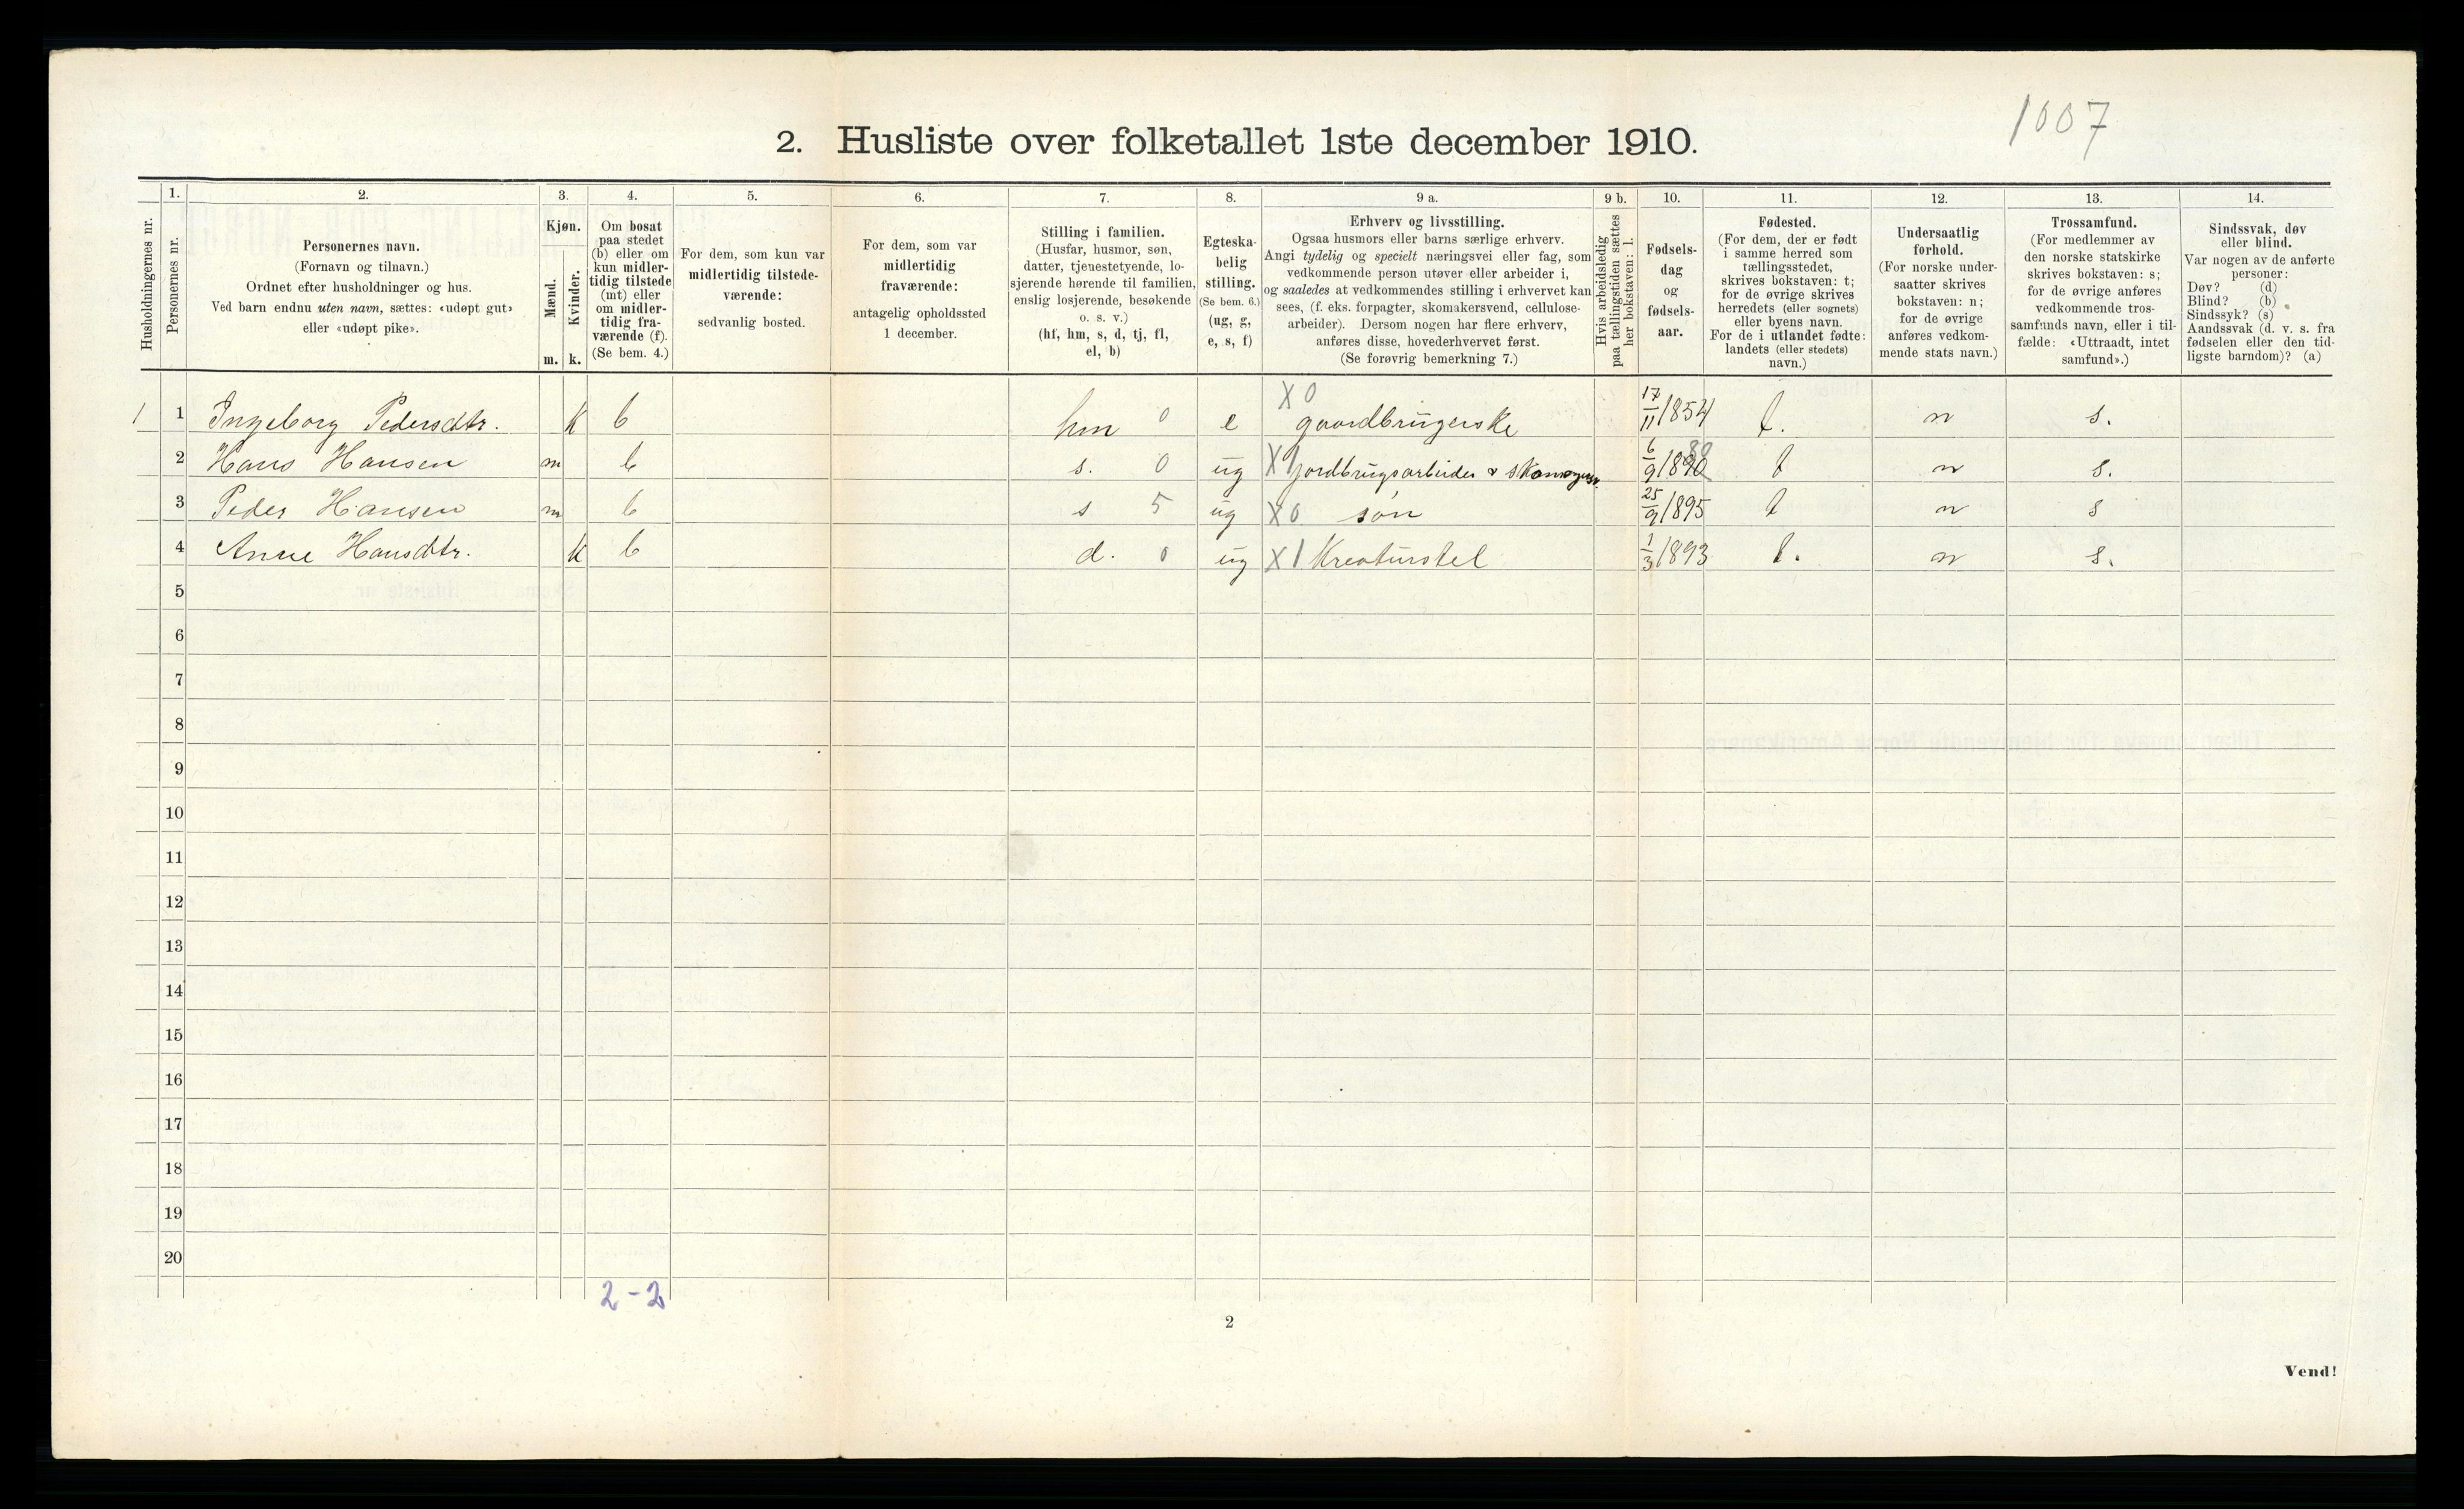 1007
2. Husliste over folketallet 1ste december 1910.
Husholdningernes nr.
1.
Personernes nr.
2.
Personernes navn.
(Fornavn og tilnavn.)
Ordnet efter husholdninger og hus.
Ved barn endnu uten navn, sættes: «udøpt gut»
eller «udøpt pike».
3.
Kjøn.
Mænd.
Kvinder.
m. k.
4.
Om bosat
paa stedet
(b) eller om
kun midler-
tidig tilstede
(mt) eller
om midler-
tidig fra-
værende (f).
(Se bem. 4.)
5.
For dem, som kun var
midlertidig tilstede-
værende:
sedvanlig bosted.
6.
For dem, som var
midlertidig
fraværende:
antagelig opholdssted
1 december.
7.
Stilling i familien.
(Husfar, husmor, søn,
datter, tjenestetyende, lo-
sjerende hørende til familien,
enslig losjerende, besøkende
o. s. v.)
(hf, hm, s, d, tj, fl,
el, b)
8.
Egteska-
belig
stilling.
(Se bem. 6.)
(ug, g,
e, s, f)
9 a.
Erhverv og livsstilling.
Ogsaa husmors eller barns særlige erhverv.
Angi tydelig og specielt næringsvei eller fag, som
vedkommende person utøver eller arbeider i,
og saaledes at vedkommendes stilling i erhvervet kan
sees, (f. eks. forpagter, skomakersvend, cellulose-
arbeider). Dersom nogen har flere erhverv,
anføres disse, hovederhvervet først.
(Se forøvrig bemerkning 7.)
9 b.
Hvis arbeidsledig
paa tællingstiden sættes
her bokstaven: l.
10.
Fødsels-
dag
og
fødsels-
aar.
11.
Fødested.
(For dem, der er født
i samme herred som
tællingsstedet,
skrives bokstaven: t;
for de øvrige skrives
herredets (eller sognets)
eller byens navn.
For de i utlandet fødte:
landets (eller stedets)
navn.)
12.
Undersaatlig
forhold.
(For norske under-
saatter skrives
bokstaven: n;
for de øvrige
anføres vedkom-
mende stats navn.)
13.
Trossamfund.
(For medlemmer av
den norske statskirke
skrives bokstaven: s;
for de øvrige anføres
vedkommende tros-
samfunds navn, eller i til-
fælde: «Uttraadt, intet
samfund».)
14.
Sindssvak, døv
eller blind.
Var nogen av de anførte
personer:
Døv? (d)
Blind? (b)
Sindssyk? (s)
Aandssvak (d. v. s. fra
fødselen eller den tid-
ligste barndom)? (a)
1 1 Ingeborg Pedersdtr. k b hm 0 e X 0 gaardbrugerske 17/11 1854 t. n s.
2 Hans Hansen m b s. 0 ug X 1 jordbrugsarbeider & 6/9 1890 t n s.
3 Peder Hansen m b s 5 ug X 0 søn 25/9 1895 t n s
4 Anne Hansdtr. k b d. 0 ug X 1 Kreaturstel 1/3 1893 t. n s.
5
6
7
8
9
10
11
12
13
14
15
16
17
18
19
20
2 - 2
2
Vend!